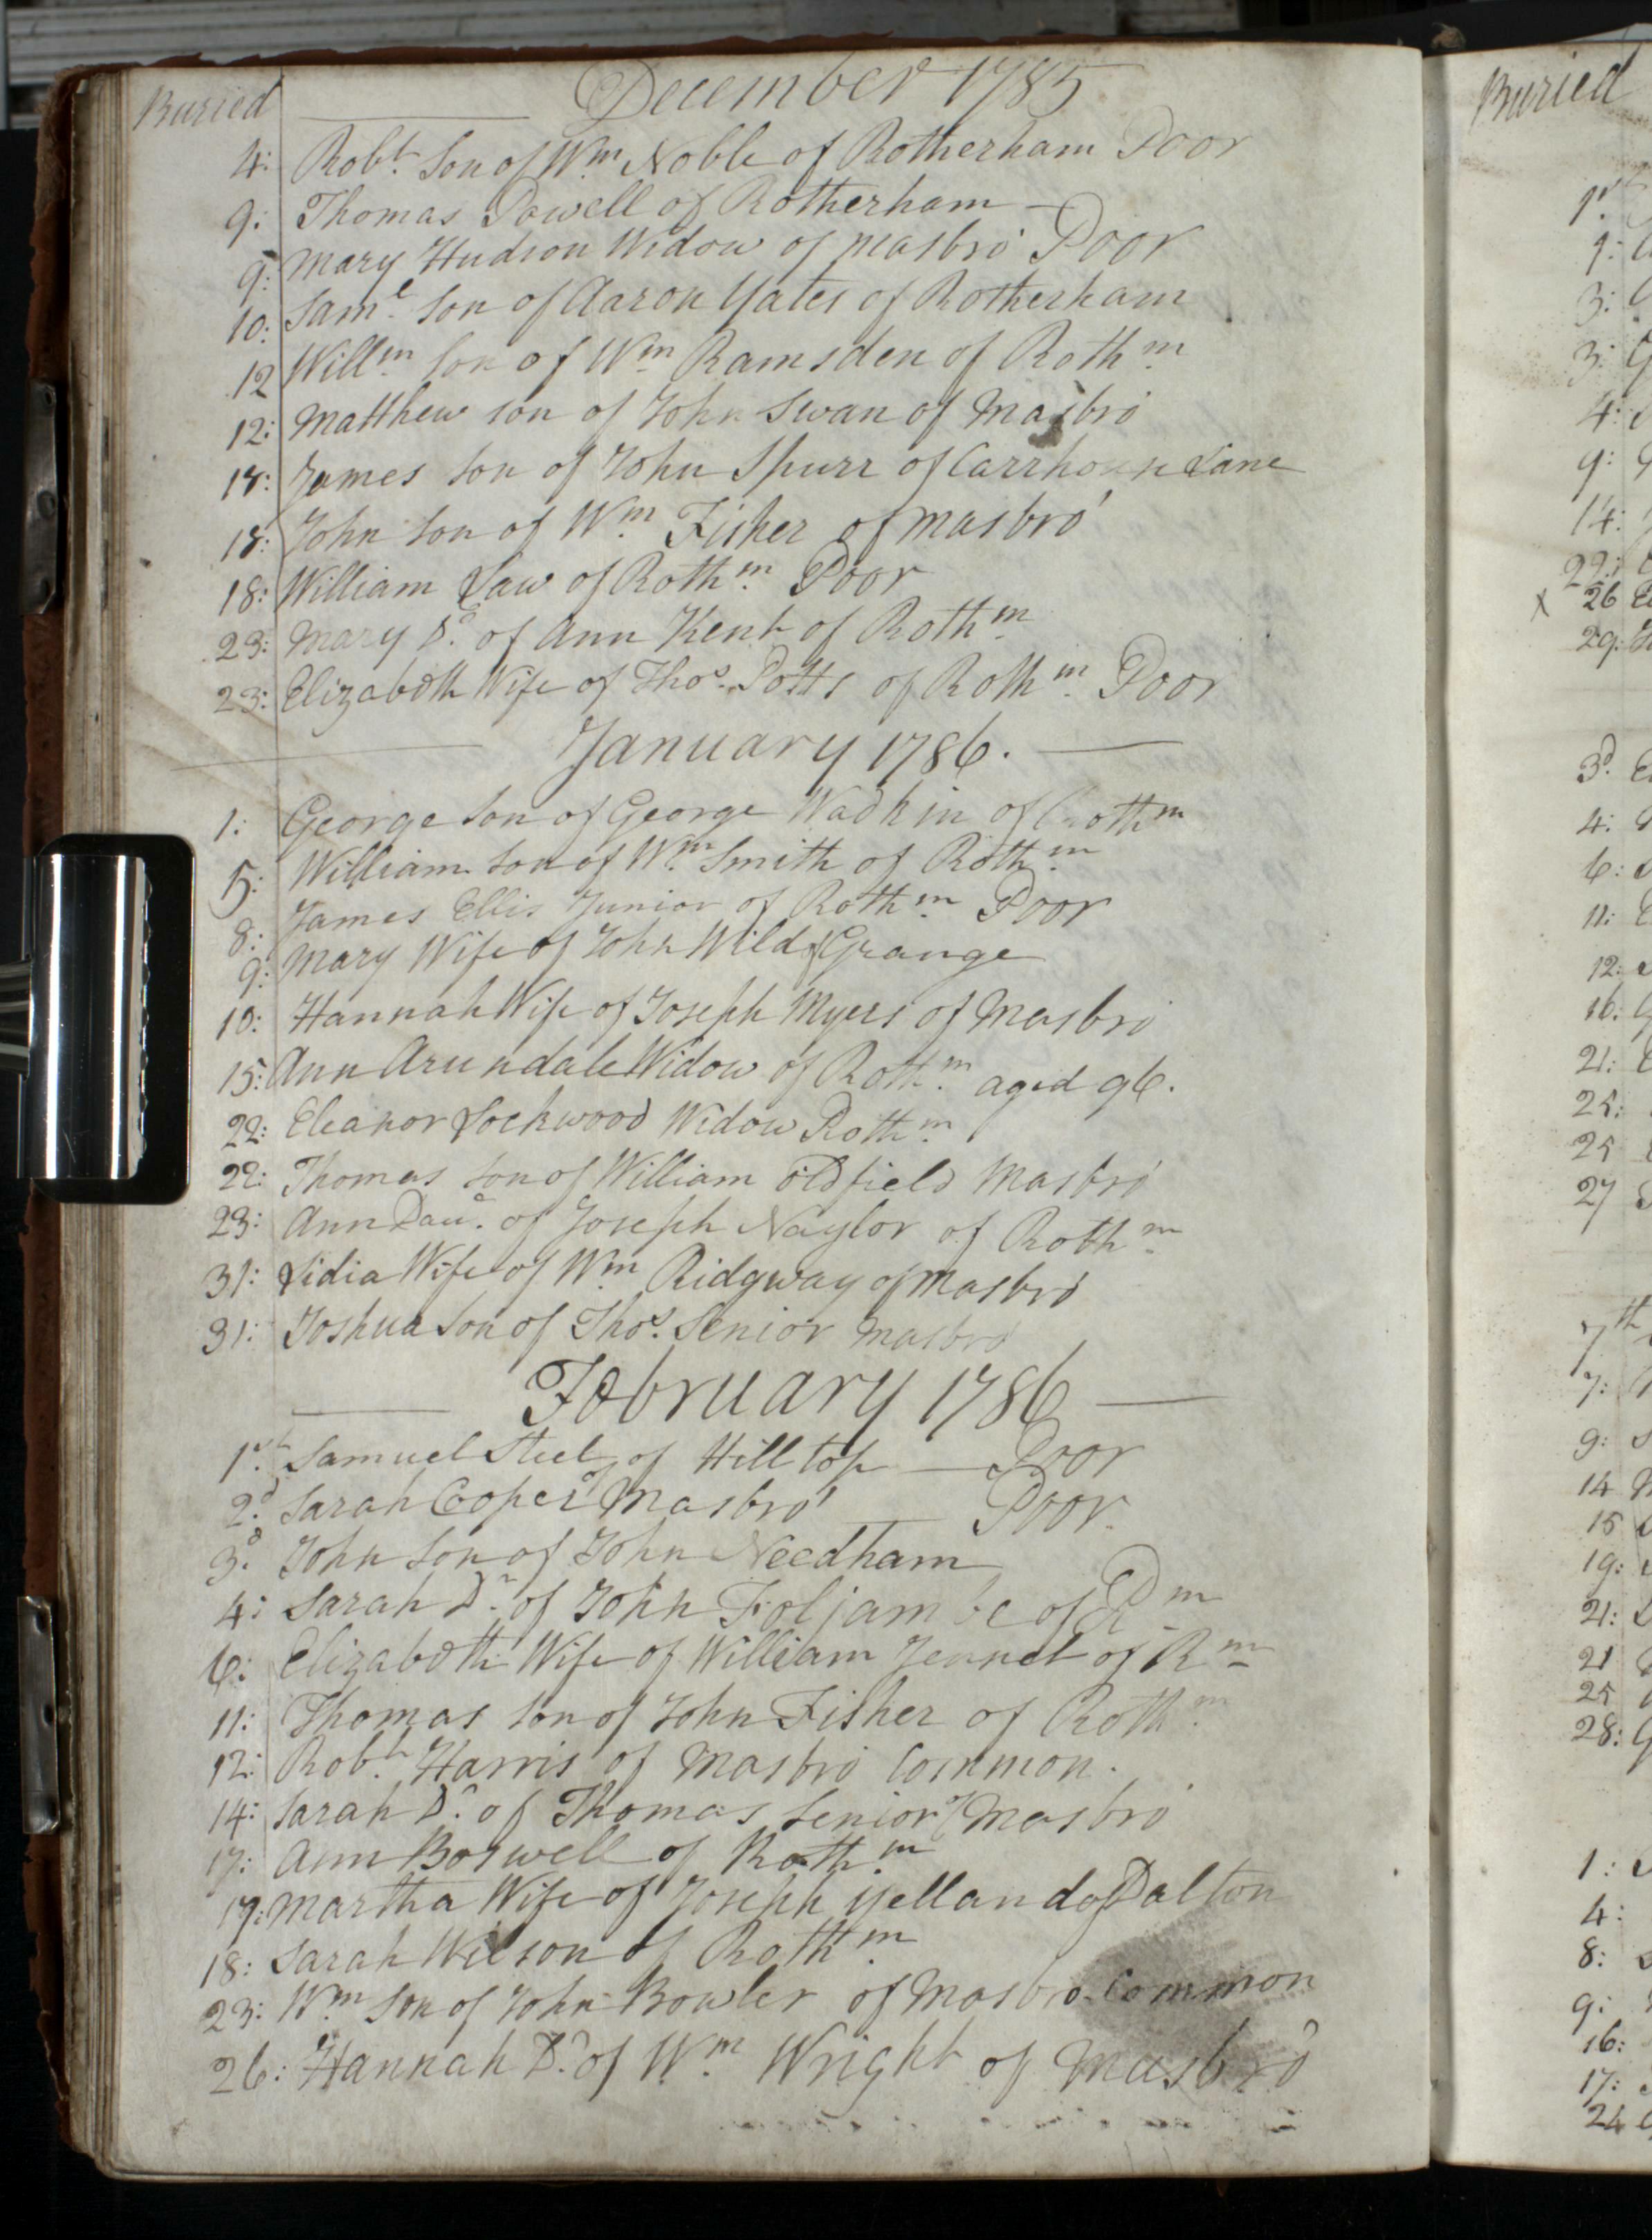 Buried December 1785
4: Robt. Son of Wm. Noble of Rotherham Poor
9: Thomas Powell of Rotherham —
9: Mary Hudson Widow of Masbro' Poor
10: Saml. Son of Aaron Yates of Rotherham
12 Willm. Son of Wm. Ramsden of Rothm.
12: Matthew son of John Swan of Masbro'
18: James son of John Spurr of Carrhouse Lane
18: John son of Wm. Fisher of Masbro'
18: William Law of Rothm. Poor
23: Mary Dr. of Ann Kent of Rothm.
23: Elizabeth Wife of Thos. Potts of Rothm. Poor
January 1786.
1: George Son of George Wadkin of Rothm
5: William son of Wm. Smith of Rothm.
8: James Ellis Junior of Rothm. Poor
9: Mary Wife of John Wild of Grange
10: Hannah Wife of Joseph Myers of Masbro'
15: Ann Arundale Widow of Rothm. aged 96.
22: Eleanor Lockwood Widow Rothm.
22: Thomas son of William Oldfield Masbro'
23: Ann Daur. of Joseph Naylor of Rothm.
31: Lidia Wife of Wm. Ridgway of Masbro'
31: Joshua Son of Thos. Senior Masbro'
February 1786
1st. Samuel Steel of Hill top — Poor
2d. Sarah Cooper of Masbro' — Poor
3d. John Son of John Needham
4: Sarah Dr. of John Foljambe of Rm
6: Elizabeth Wife of William Jennet of Rm
11: Thomas son of John Fisher of Rothm.
12: Robt. Harris of Masbro' Common.
14: Sarah Dr. of Thomas Senior of Masbro'
17: Ann Boswell of Rothm.
17: Martha Wife of Joseph Yelland of Dalton
18: Sarah Wilson of Rothm.
23: Wm. Son of John Bowler of Masbro Common
26: Hannah Dr. of Wm. Wright of Masbro'
Buried
1st.
1:
3:
3:
4:
9:
14:
22:
x 26
29:
3d.
4:
6:
11:
12:
16:
21:
25:
25
27
7th
7:
9:
14
15
19:
21:
21
25
28:
1:
4:
8:
9:
16:
17:
24